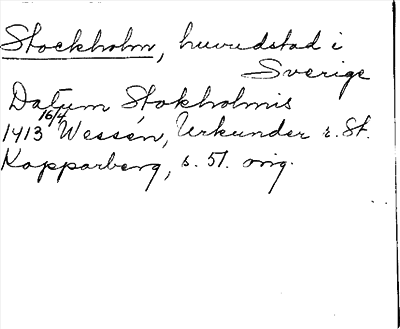 Stockholm, huvudstad i
Sverige
Datum Stokholmis
1413 16/4 Wessén, Urkunder r. St.
Kopparberg, s. 51. orig.